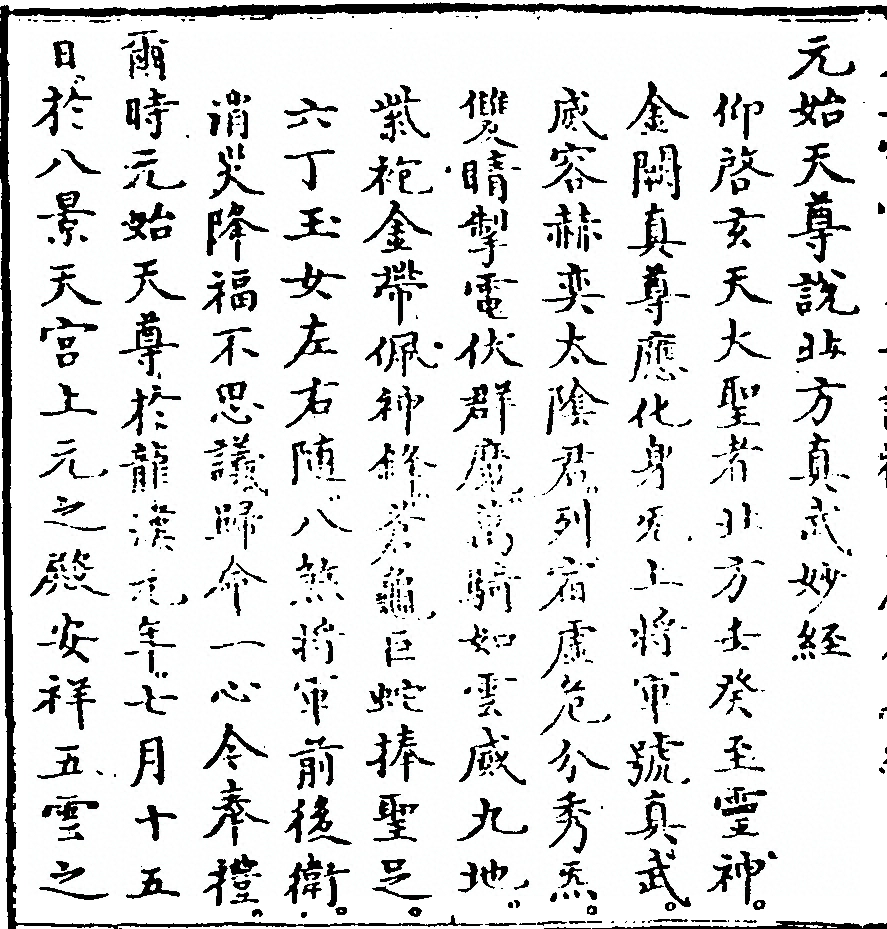 元始天尊說北方真武妙経
仰啓玄天大聖者北方壬癸至霊神。
金闕真尊應化身无上將軍號真武。
威容赫奕太陰君列宿虛危分秀炁。
雙睛掣電伏群魔萬騎如雲威九地。
紫袍金帶佩神鋒蒼龜巨蛇捧聖足。
六丁玉女左右随八煞將軍前後衛。
消災降福不思議歸命一心今奉禮。
爾時元始天尊於龍漢元年七月十五
日於八景天宫上元之殿安祥五雲之